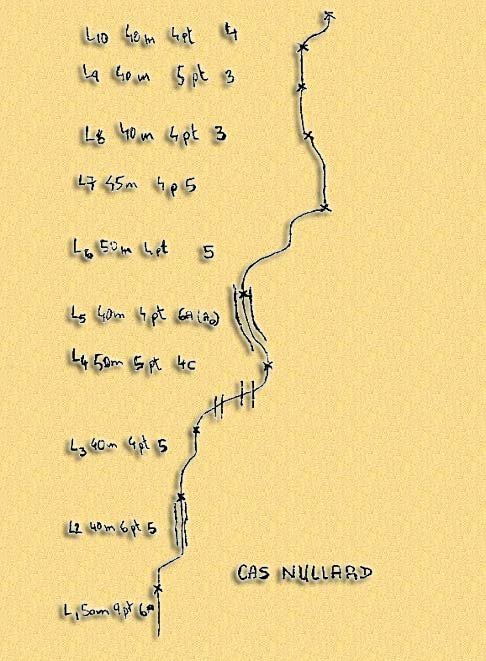 L10 40m 4pt 4
L9 40m 5pt 3
L8 40m 4pt 3
L7 45m 4p 5
L6 50m 4pt 5
L5 40m 4pt 6A (A0)
L4 50m 5pt 4c
L3 40m 4pt 5
L2 40m 6pt 5
CAS NULLARD
L1 50m 9pt 6a